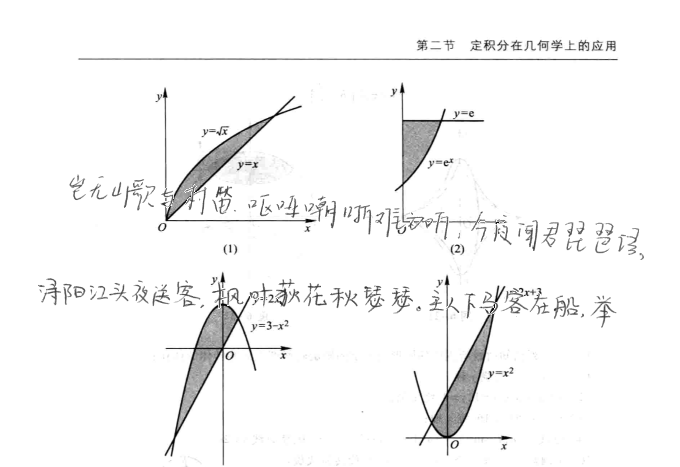 第二节 定积分在几何学上的应用
y
y=√x
y=x
O
x
(1)
y
y=e
y=eˣ
(2)
岂无山歌与村笛.呕哑嘲哳难为听,今夜闻君琵琶语,
浔阳江头夜送客,枫叶荻花秋瑟瑟。主人下马客在船,举
y
y=3-x²
O
x
y
=2x+3
y=x²
O
x